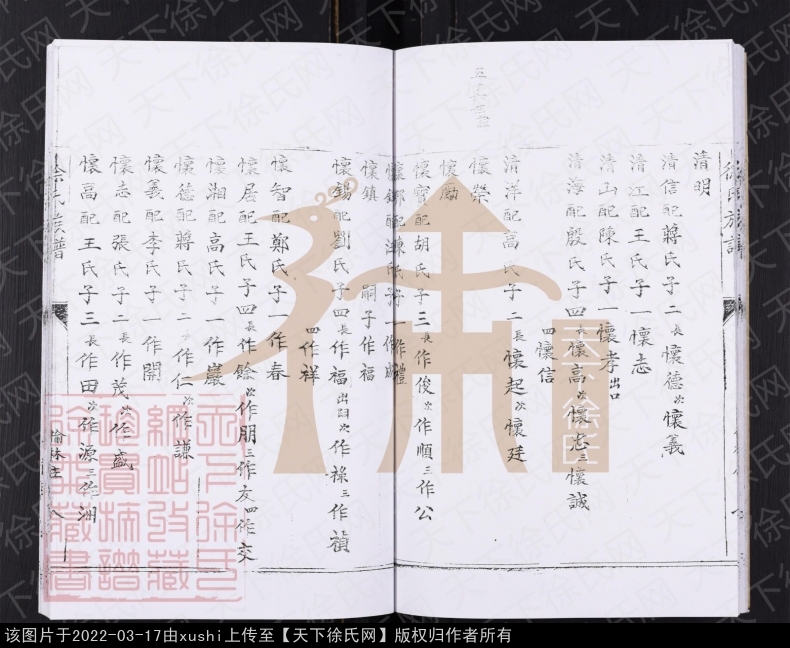 徐氏族譜
清明
清信配蔣氏子二長懷德次懷義
清江配王氏子一懷志
清山配陳氏子一懷孝出口
清海配殷氏子四長懷高次懷忠三懷誠
四懷信
清洋配高氏子二長懷起次懷廷
懷榮
懷勵
懷寶配胡氏子三長作俊次作順三作公
懷鎮 嗣子作福
懷錫配劉氏子四長作福出嗣次作祿三作禎
四作祥
懷智配鄭氏子一作春
懷居配王氏子四長作餘次作朋三作友四作交
懷湘配高氏子一作嚴
懷德配蔣氏子二作仁次作謙
懷義配李氏子一作開
懷志配張氏子二長作茂次作盛
懷高配王氏子三長作田次作源三作湘
徐氏族譜
榆林庄
八
天下徐氏網站收藏珍貴摘譜萊藏書
天下徐氏网
该图片于2022-03-17由xushi上传至【天下徐氏网】版权归作者所有